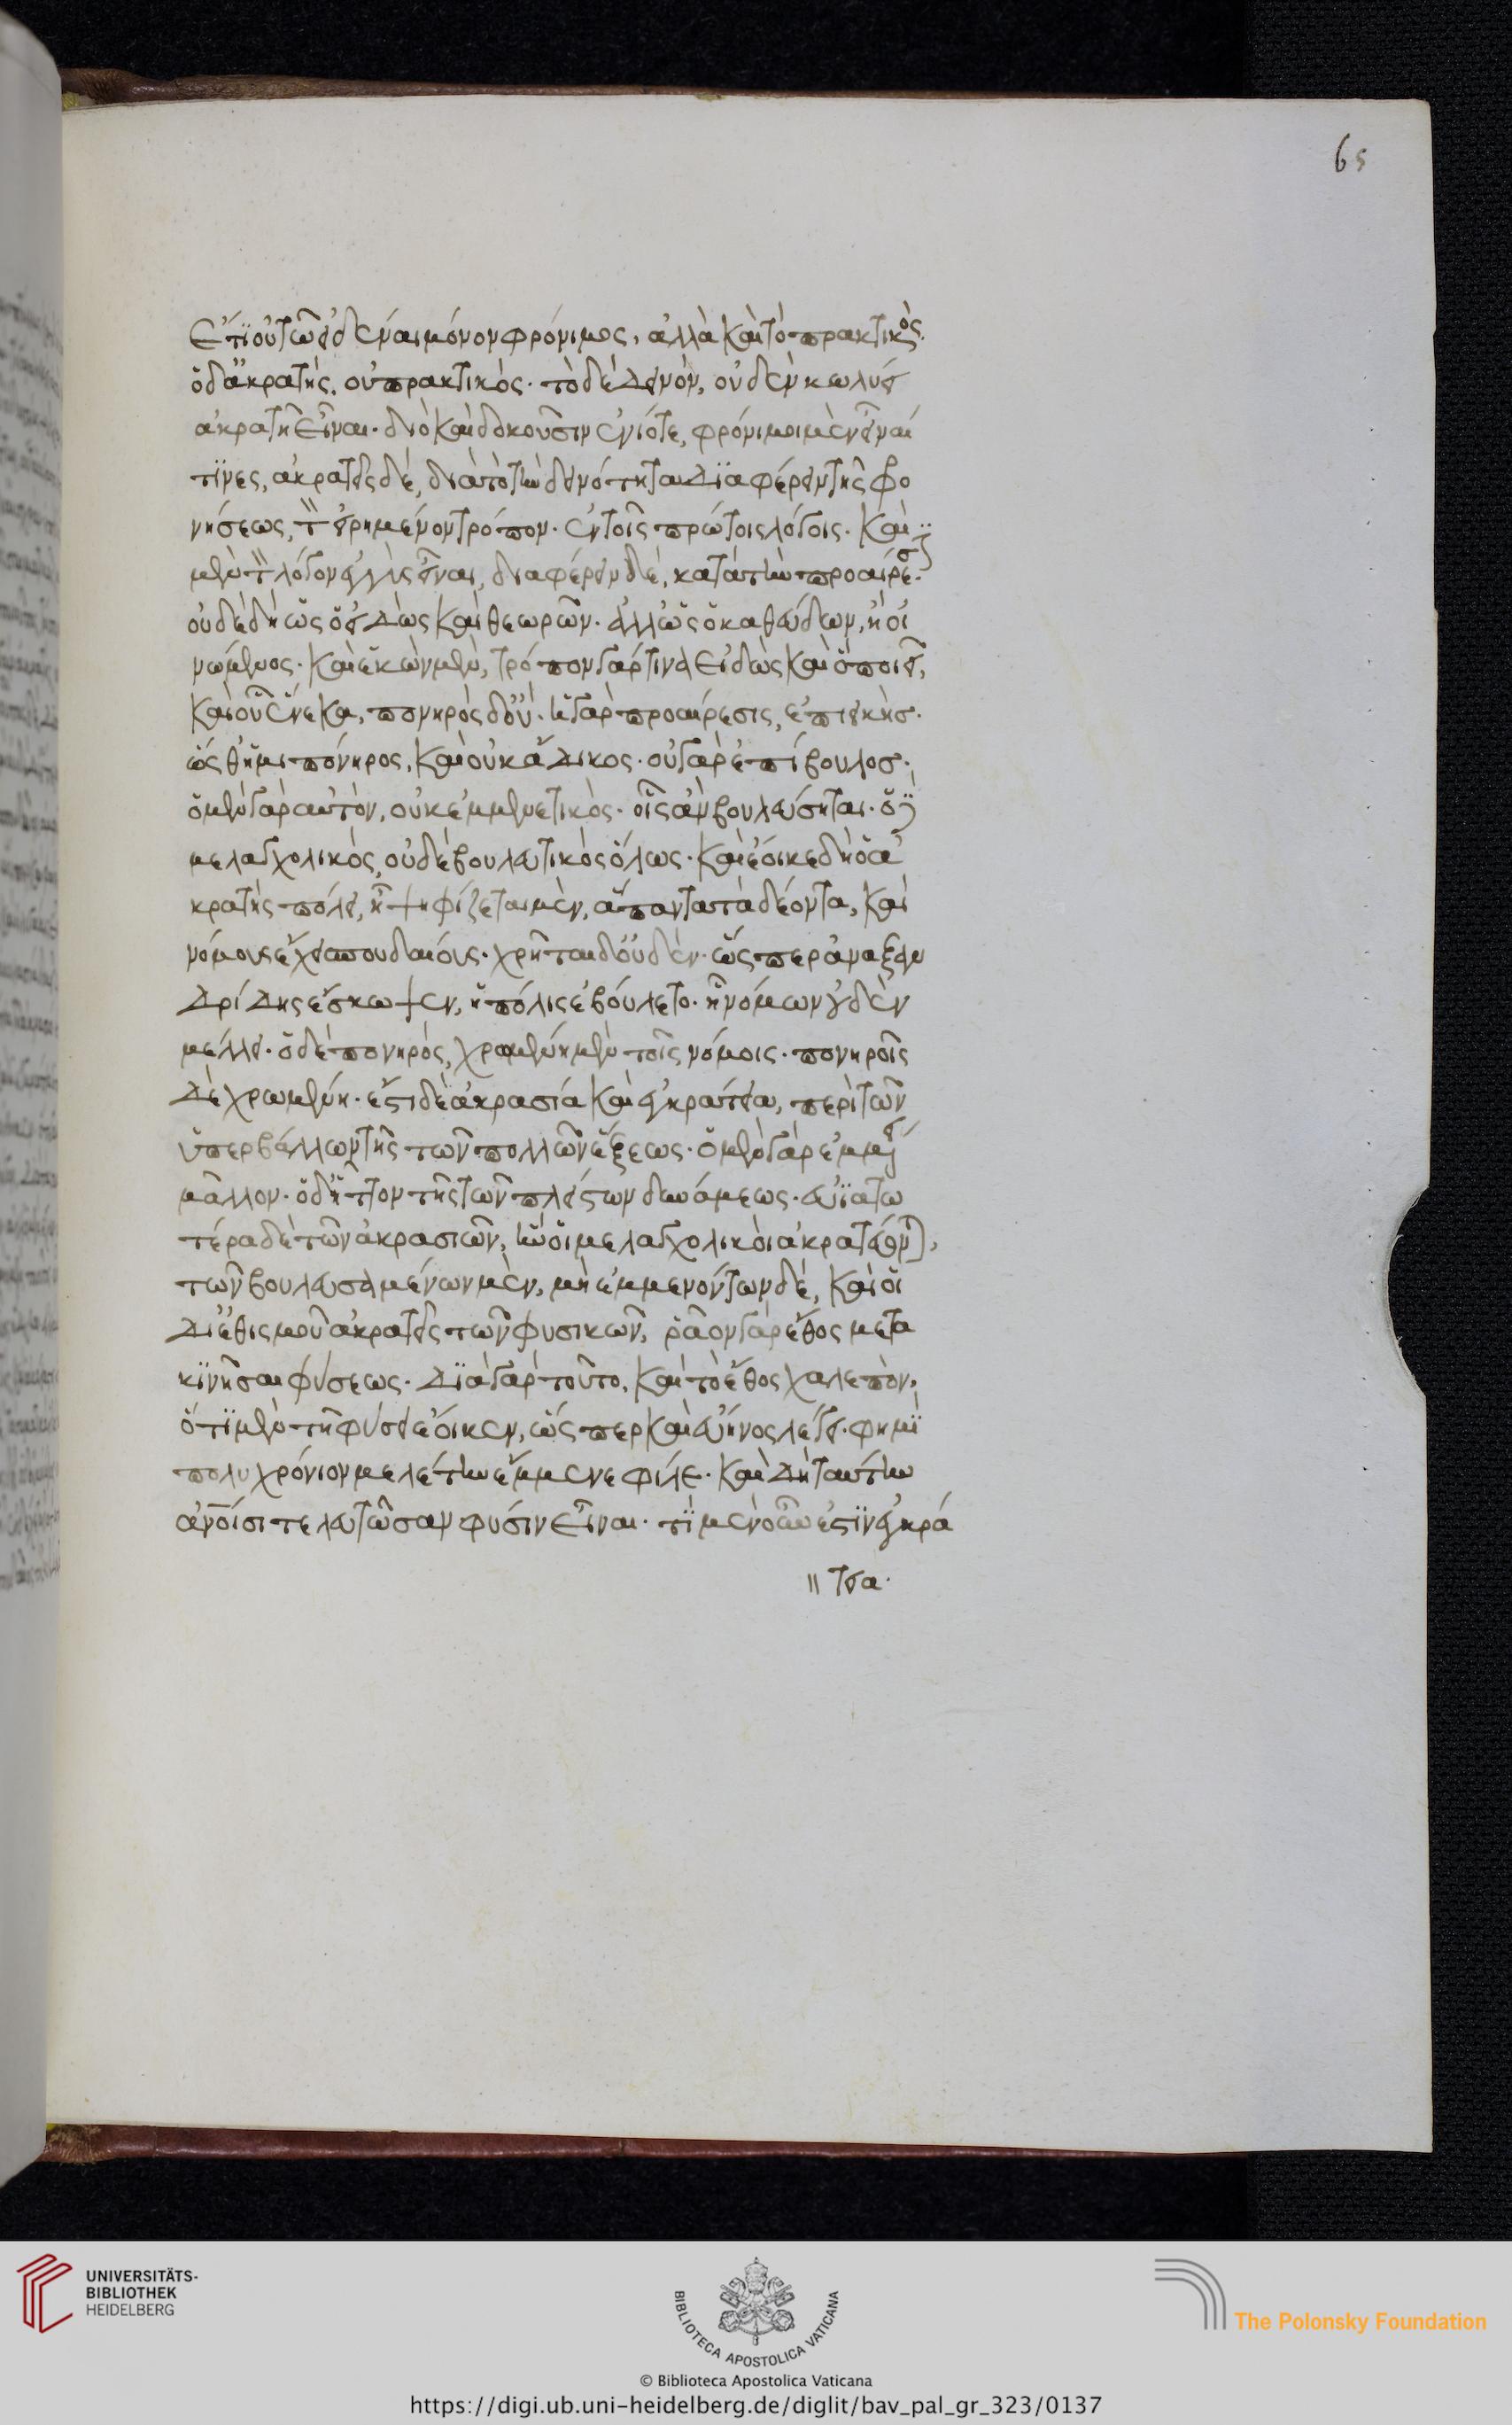 65
ἔτι οὐ τῶ εἰδέναι μόνον φρόνιμος, ἀλλὰ καὶ τὸ πρακτικὸς.
ὁ δ' ἀκρατὴς, οὐ πρακτικὸς. τὸ δὲ δεινὸν, οὐδὲν κωλύει
ἀκρατῆ εἶναι. διὸ καὶ δοκοῦσιν ἐνίοτε, φρόνιμοι μὲν εἶναί
τινες, ἀκρατεῖς δὲ, διὰ τὸ τὴν δεινότητα διαφέρειν τῆς φρο
νήσεως, τὸν εἰρημένον τρόπον. ἐν τοῖς πρώτοις λόγοις. καὶ
μὲν τὸν λόγον ἐγγὺς εἶναι, διαφέρειν δὲ, κατὰ τὴν προαίρεσιν.
οὐδὲ δὴ ὡς ὁ εἰδὼς καὶ θεωρῶν. ἀλλ' ὡς ὁ καθεύδων, ἢ οἰ
νωμένος. καὶ ἑκὼν μὲν, τρόπον γάρ τινα εἰδὼς καὶ ὃ ποιεῖ,
καὶ οὗ ἕνεκα, πονηρὸς δ' οὔ. ἡ γὰρ προαίρεσις, ἐπιεικὴσ.
ὥσθ' ἡμιπόνηρος, καὶ οὐκ ἄδικος. οὐ γὰρ ἐπίβουλοσ.
ὁ μὲν γὰρ αὐτὸν, οὐκ ἐμμενετικὸς. οἷς ἂν βουλεύσηται. ὁ δὲ
μελαγχολικὸς, οὐδὲ βουλευτικὸς ὅλως. καὶ ἔοικε δὴ ὁ ἀ
κρατὴς πόλει, ἣ ψηφίζεται μὲν, ἅπαντα τὰ δέοντα, καὶ
νόμους ἔχει σπουδαίους. χρῆται δ' οὐδὲν. ὥσπερ ἀναξαν
δρίδης ἔσκωψεν, ἡ πόλις ἐβούλετο. ἧ νόμων οὐδὲν
μέλλει. ὁ δὲ πονηρὸς, χρωμένη μὲν τοῖς νόμοις. πονηροῖς
δὲ χρωμένη. ἔστι δὲ ἀκρασία καὶ ἐγκράτεια, περὶ τῶν
ὑπερβάλλων τῆς τῶν πολλῶν ἕξεως. ὁ μὲν γὰρ ἐμμένει
μᾶλλον. ὁ δ' ἧττον τῆς τῶν πλείστων δυνάμεως. εὐϊατω
τέρα δὲ τῶν ἀκρασιῶν, ἣν οἱ μελαγχολικοὶ ἀκρατεύονται,
τῶν βουλευσαμένων μὲν, μὴ ἐμμενόντων δὲ, καὶ οἱ
δι' ἐθισμοῦ ἀκρατεῖς τῶν φυσικῶν, ῥᾶον γὰρ ἔθος μετα
κινῆσαι φύσεως. διὰ γὰρ τοῦτο, καὶ τὸ ἔθος χαλεπὸν,
ὅτι μὲν τῆ φύσει ἔοικεν, ὥσπερ καὶ εὔηνος λέγει. φημὶ
πολυχρόνιον μελέτην ἔμμενε φίλε. καὶ δὴ ταύτην
ἀνοίσι τελευτῶσαν φύσιν εἶναι. τί μὲν οὖν ἐστὶν ἐγκρά
〃 τεια.
UNIVERSITÄTS-
BIBLIOTHEK
HEIDELBERG
BIBLIOTECA APOSTOLICA VATICANA
The Polonsky Foundation
© Biblioteca Apostolica Vaticana
https://digi.ub.uni-heidelberg.de/diglit/bav_pal_gr_323/0137